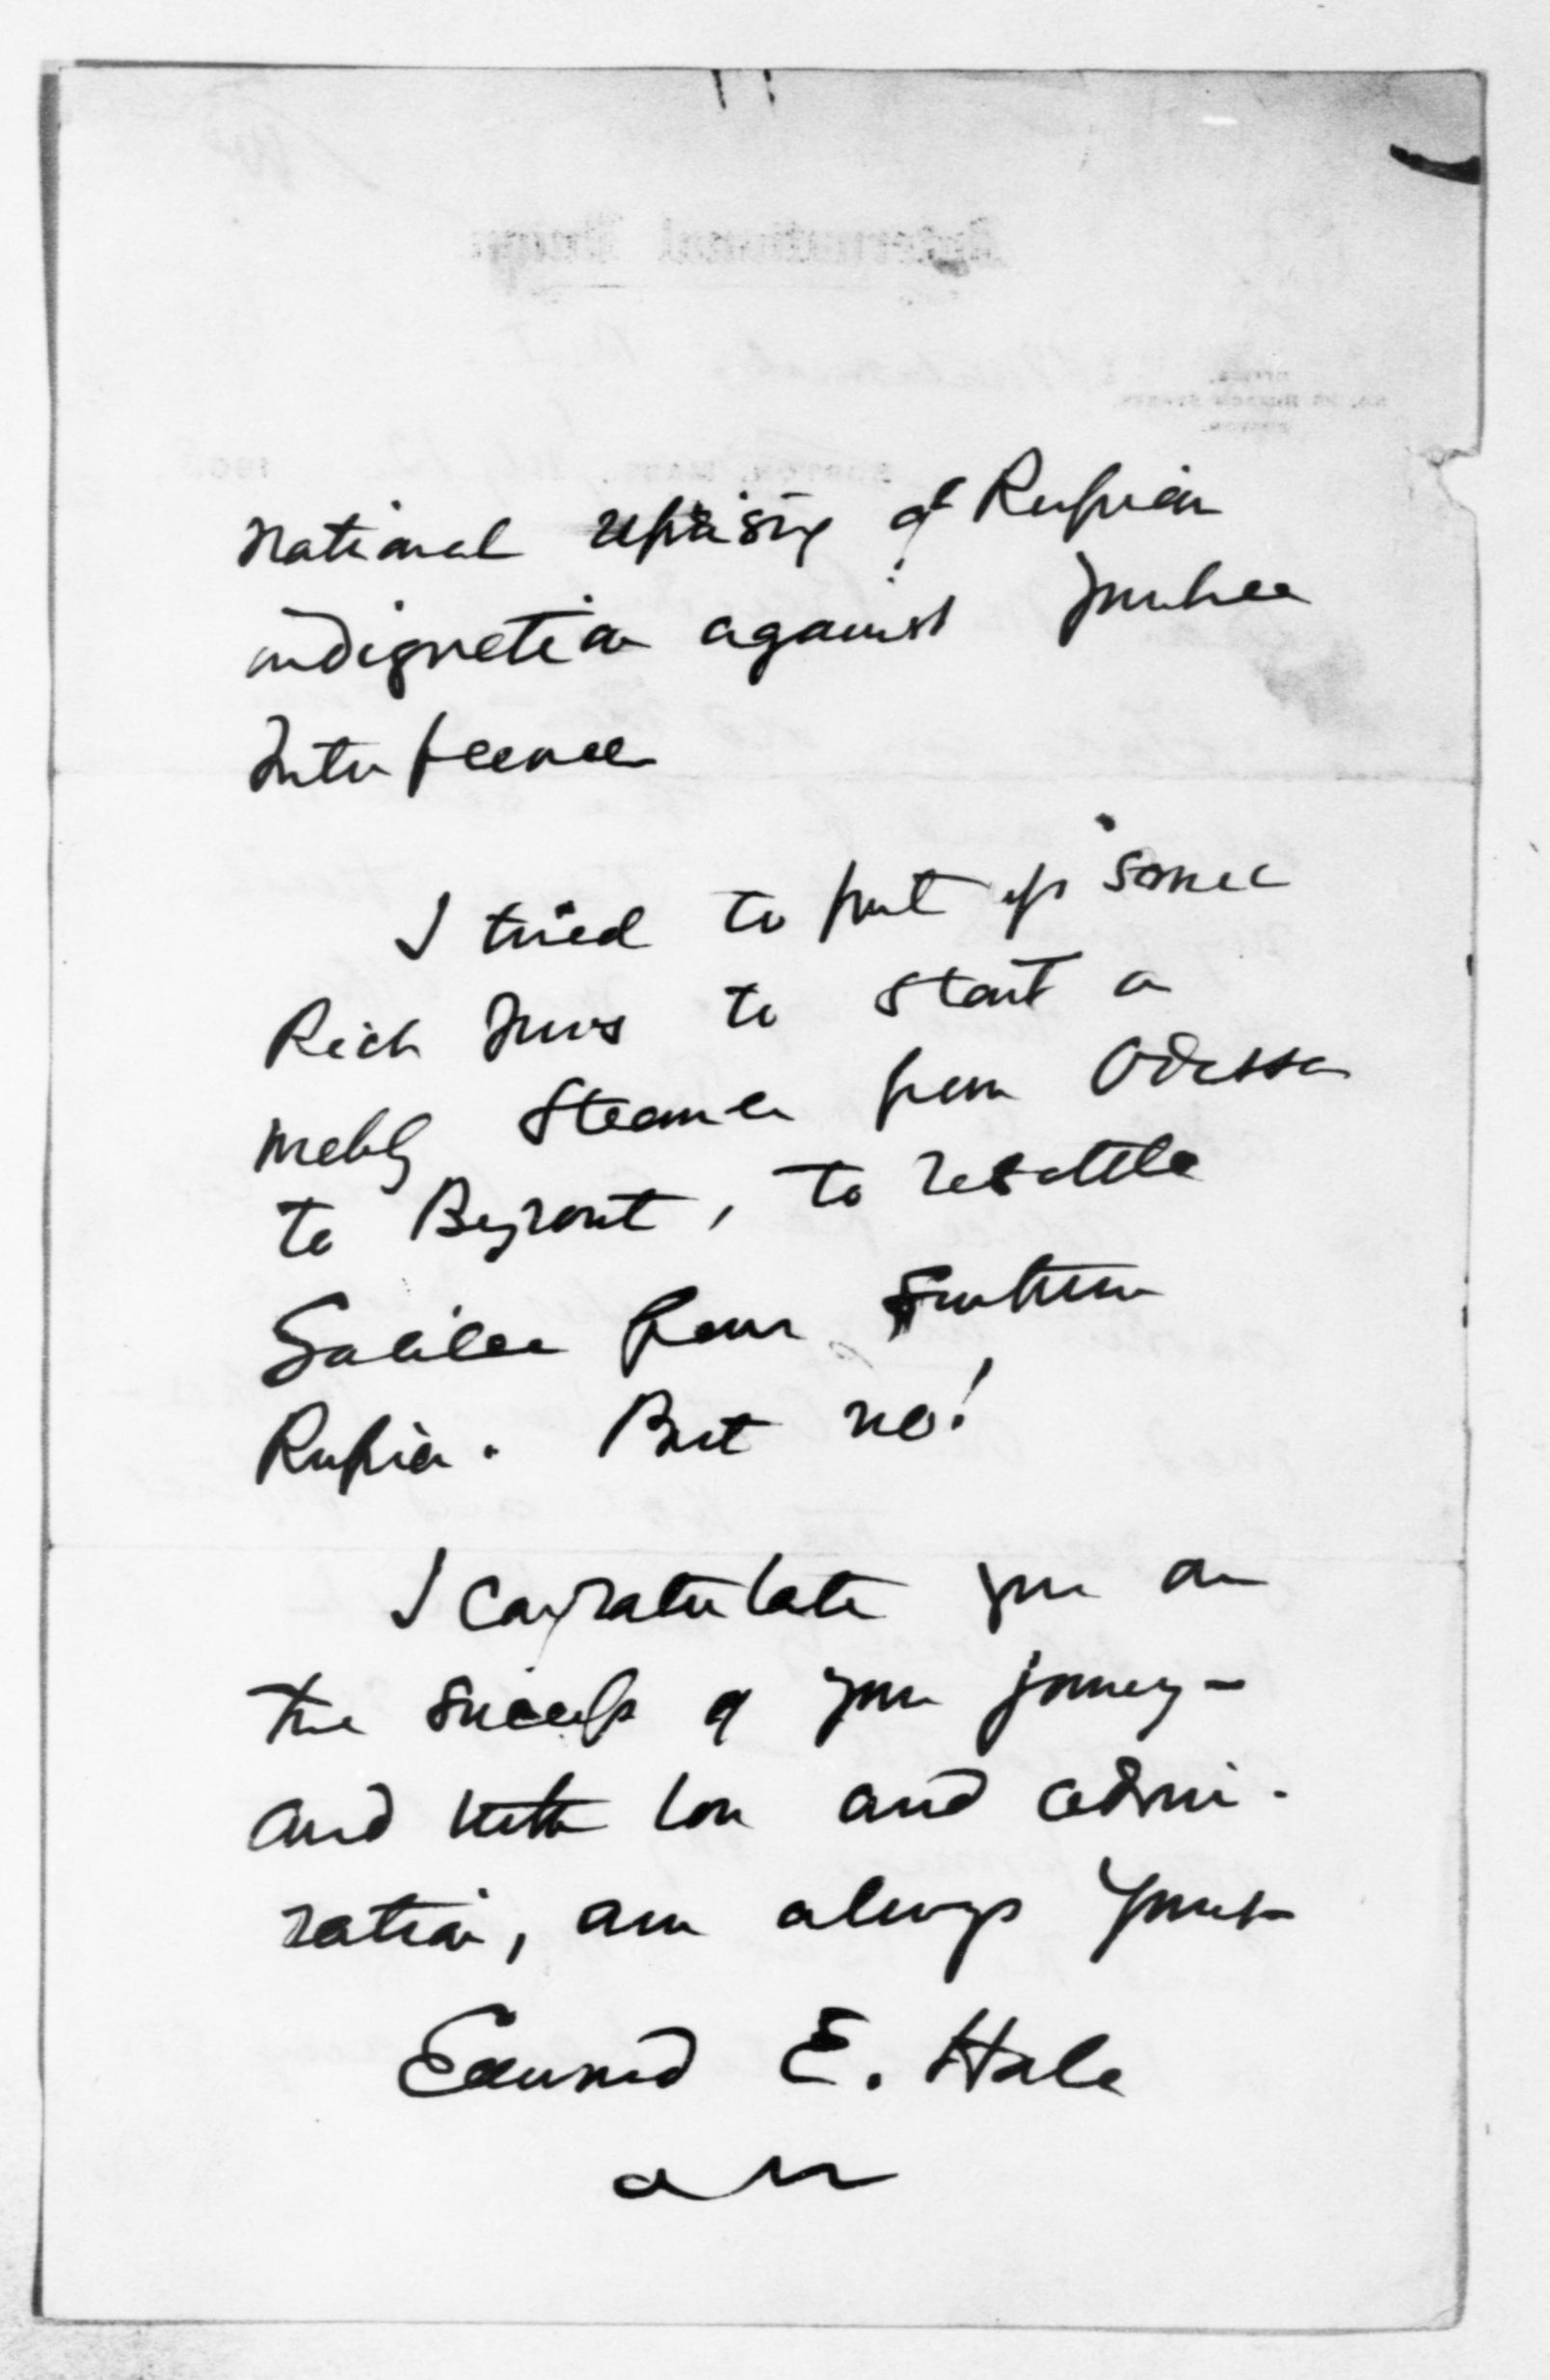 national uprising of Russian
indignation against Yankee
Interference
I tried to put up some
Rich Jews to start a
weekly steamer from Odessa
to Beyrout, to resettle
Galilee from Southern
Russia. But no!
I congratulate you on
the success of your journey -
and with love and admi-
ration, am always yours
Edward E. Hale